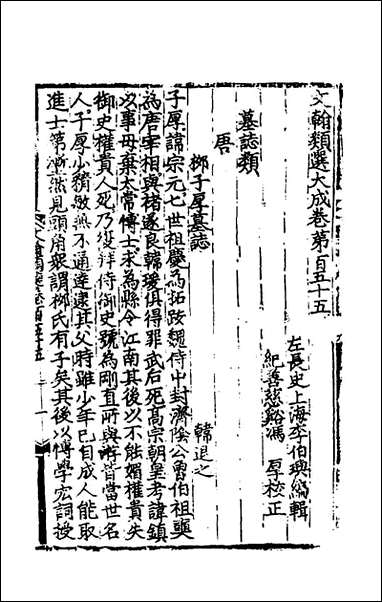 文翰類選大成卷第一百五十五
左長史上海李伯璵編輯
紀善慈谿馮厚校正
墓誌類
唐
柳子厚墓誌 韓退之
子厚諱宗元七世祖慶為拓跋魏侍中封濟陰公曾伯祖奭
為唐宰相與褚遂良韓瑗俱得罪武后死高宗朝皇考諱鎮
以事母棄太常博士求為縣令江南其後以不能媚權貴失
御史權貴人死乃復拜侍御史號為剛直所與游皆當世名
人子厚少精敏無不通達逮其父時雖少年已自成人能取
進士第嶄然見頭角衆謂柳氏有子矣其後以博學宏詞授